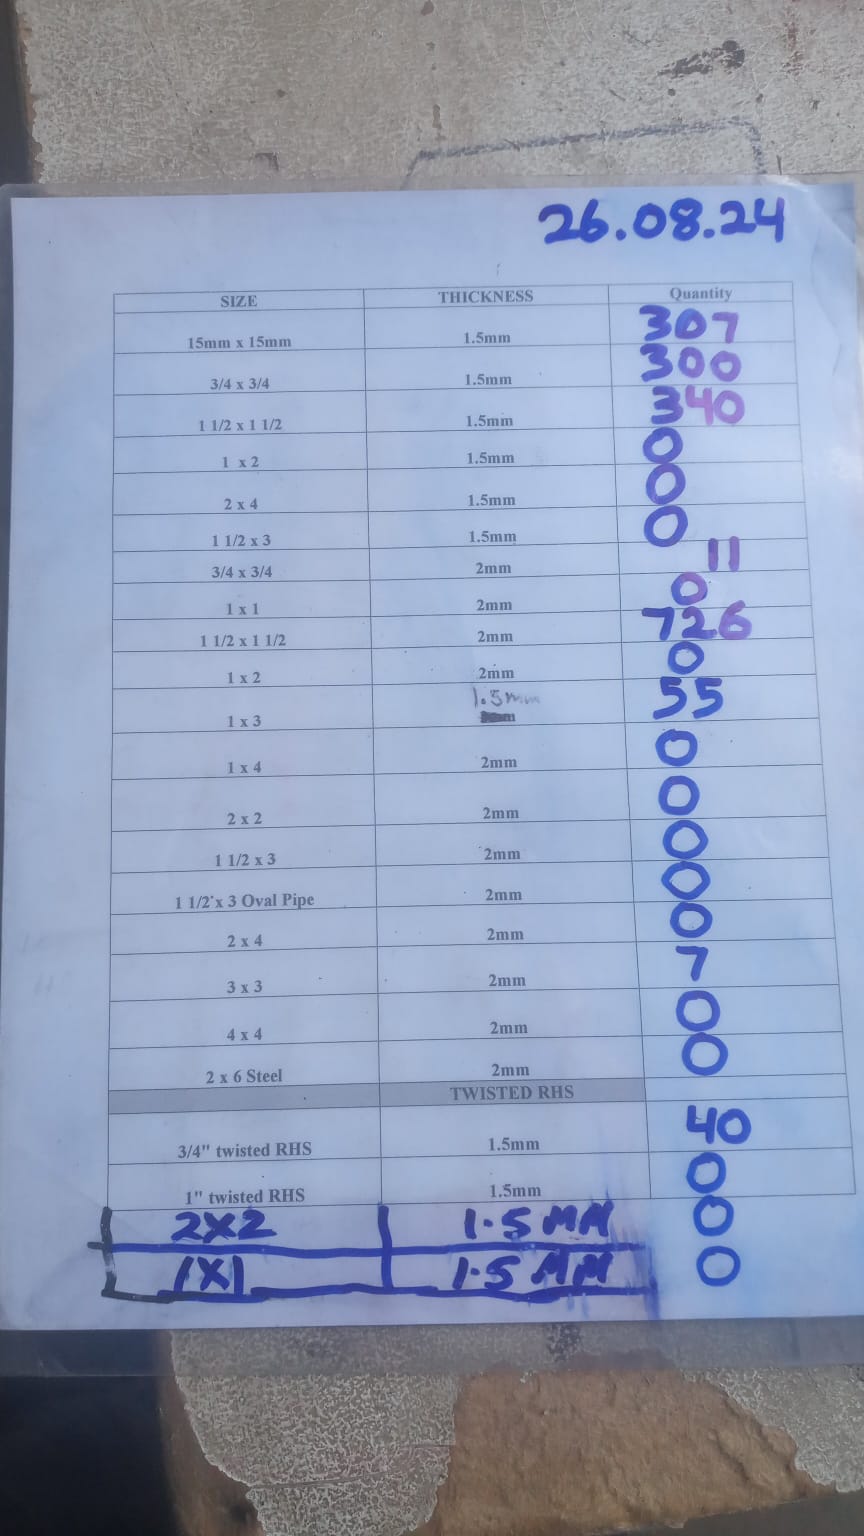 26.08.24
SIZE THICKNESS Quantity
15mm x 15mm 1.5mm 307
3/4 x 3/4 1.5mm 300
1 1/2 x 1 1/2 1.5mm 340
1 x 2 1.5mm 0
2 x 4 1.5mm 0
1 1/2 x 3 1.5mm 0
3/4 x 3/4 2mm 11
1 x 1 2mm 0
1 1/2 x 1 1/2 2mm 726
1 x 2 2mm 0
1 x 3 1.5mm 55
1 x 4 2mm 0
2 x 2 2mm 0
1 1/2 x 3 2mm 0
1 1/2 x 3 Oval Pipe 2mm 0
2 x 4 2mm 0
3 x 3 2mm 7
4 x 4 2mm 0
2 x 6 Steel 2mm 0
TWISTED RHS
3/4" twisted RHS 1.5mm 40
1" twisted RHS 1.5mm 0
2X2 1.5 MM 0
1X1 1.5 MM 0